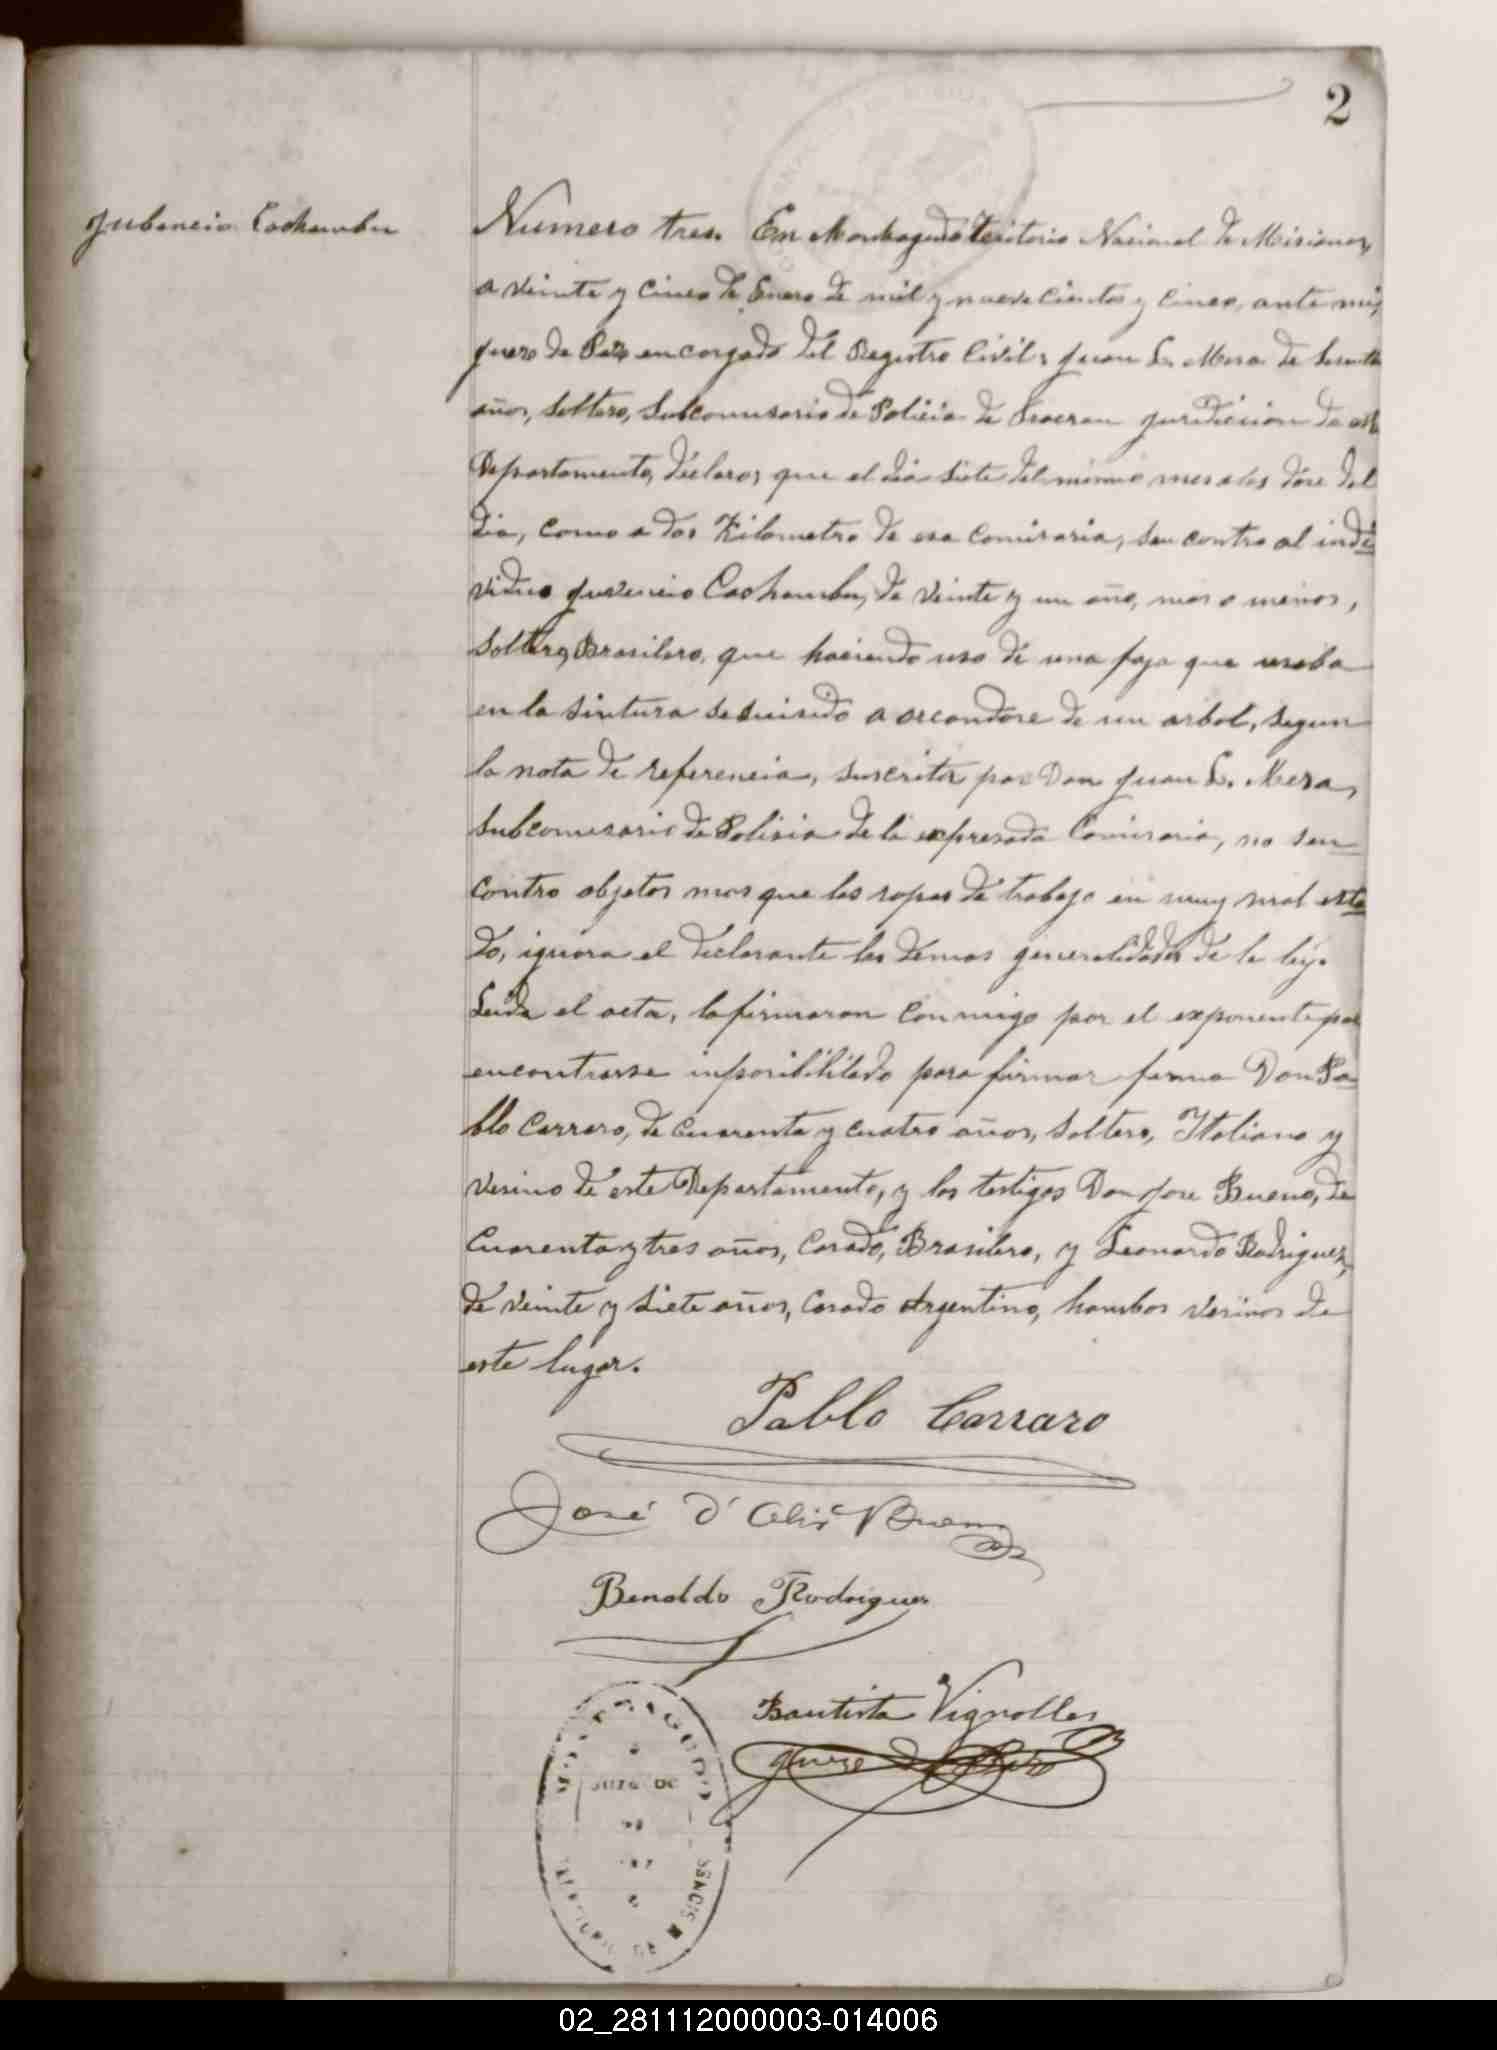 2
Jubencio Cachambu
Numero tres. En Monteagudo Teritorio Nacional de Misiones,
a veinte y cinco de Enero de mil y nueve cientos y cinco, ante mi,
Juero de Paz encargado del Registro Civil, Juan L. Mesa de
años, soltero, Subcomisario de Policia de Fracran juridicion de este
Departamento, declaro, que el dia siete del mismo mes a las dóse del
dia, como a dos Kilometro de esa comisaria, sen contro al indi
viduo Juvencio Cachambu, de veinte y un año, mas o menos,
soltero, Brasilero, que haciendo uso de una faja que usaba
en la sintura se suisido a orcandose de un arbol, segun
la nota de referencia, suscrita por Don Juan L. Mesa,
Subcomisario de Polisia de la expresada Comisaria, no sen
contro objetos mas que las ropas de trabajo en muy mal esta
do, ignora el declarante las demas generalidades de la ley.
Leida el acta, la firmaron conmigo por el exponente por
encontrarse inposibilitado para firmar firma Don Pa
blo Carraro, de cuarenta y cuatro años, soltero, Italiano y
vesino de este Departamento, y los testigos Don Jose Bueno, de
cuarenta y tres años, casado, Brasilero, y Leonardo Rodriguez,
de veinte y siete años, casado Argentino, hambos vesinos de
este lugar.
Pablo Carraro
José d' Bueno
Benaldo Rodriguez
Bautista Vignolles
Jues de Paz
MONTEAGUDO
JUZG DE
TERRITORIO DE MISIONES
02_281112000003-014006